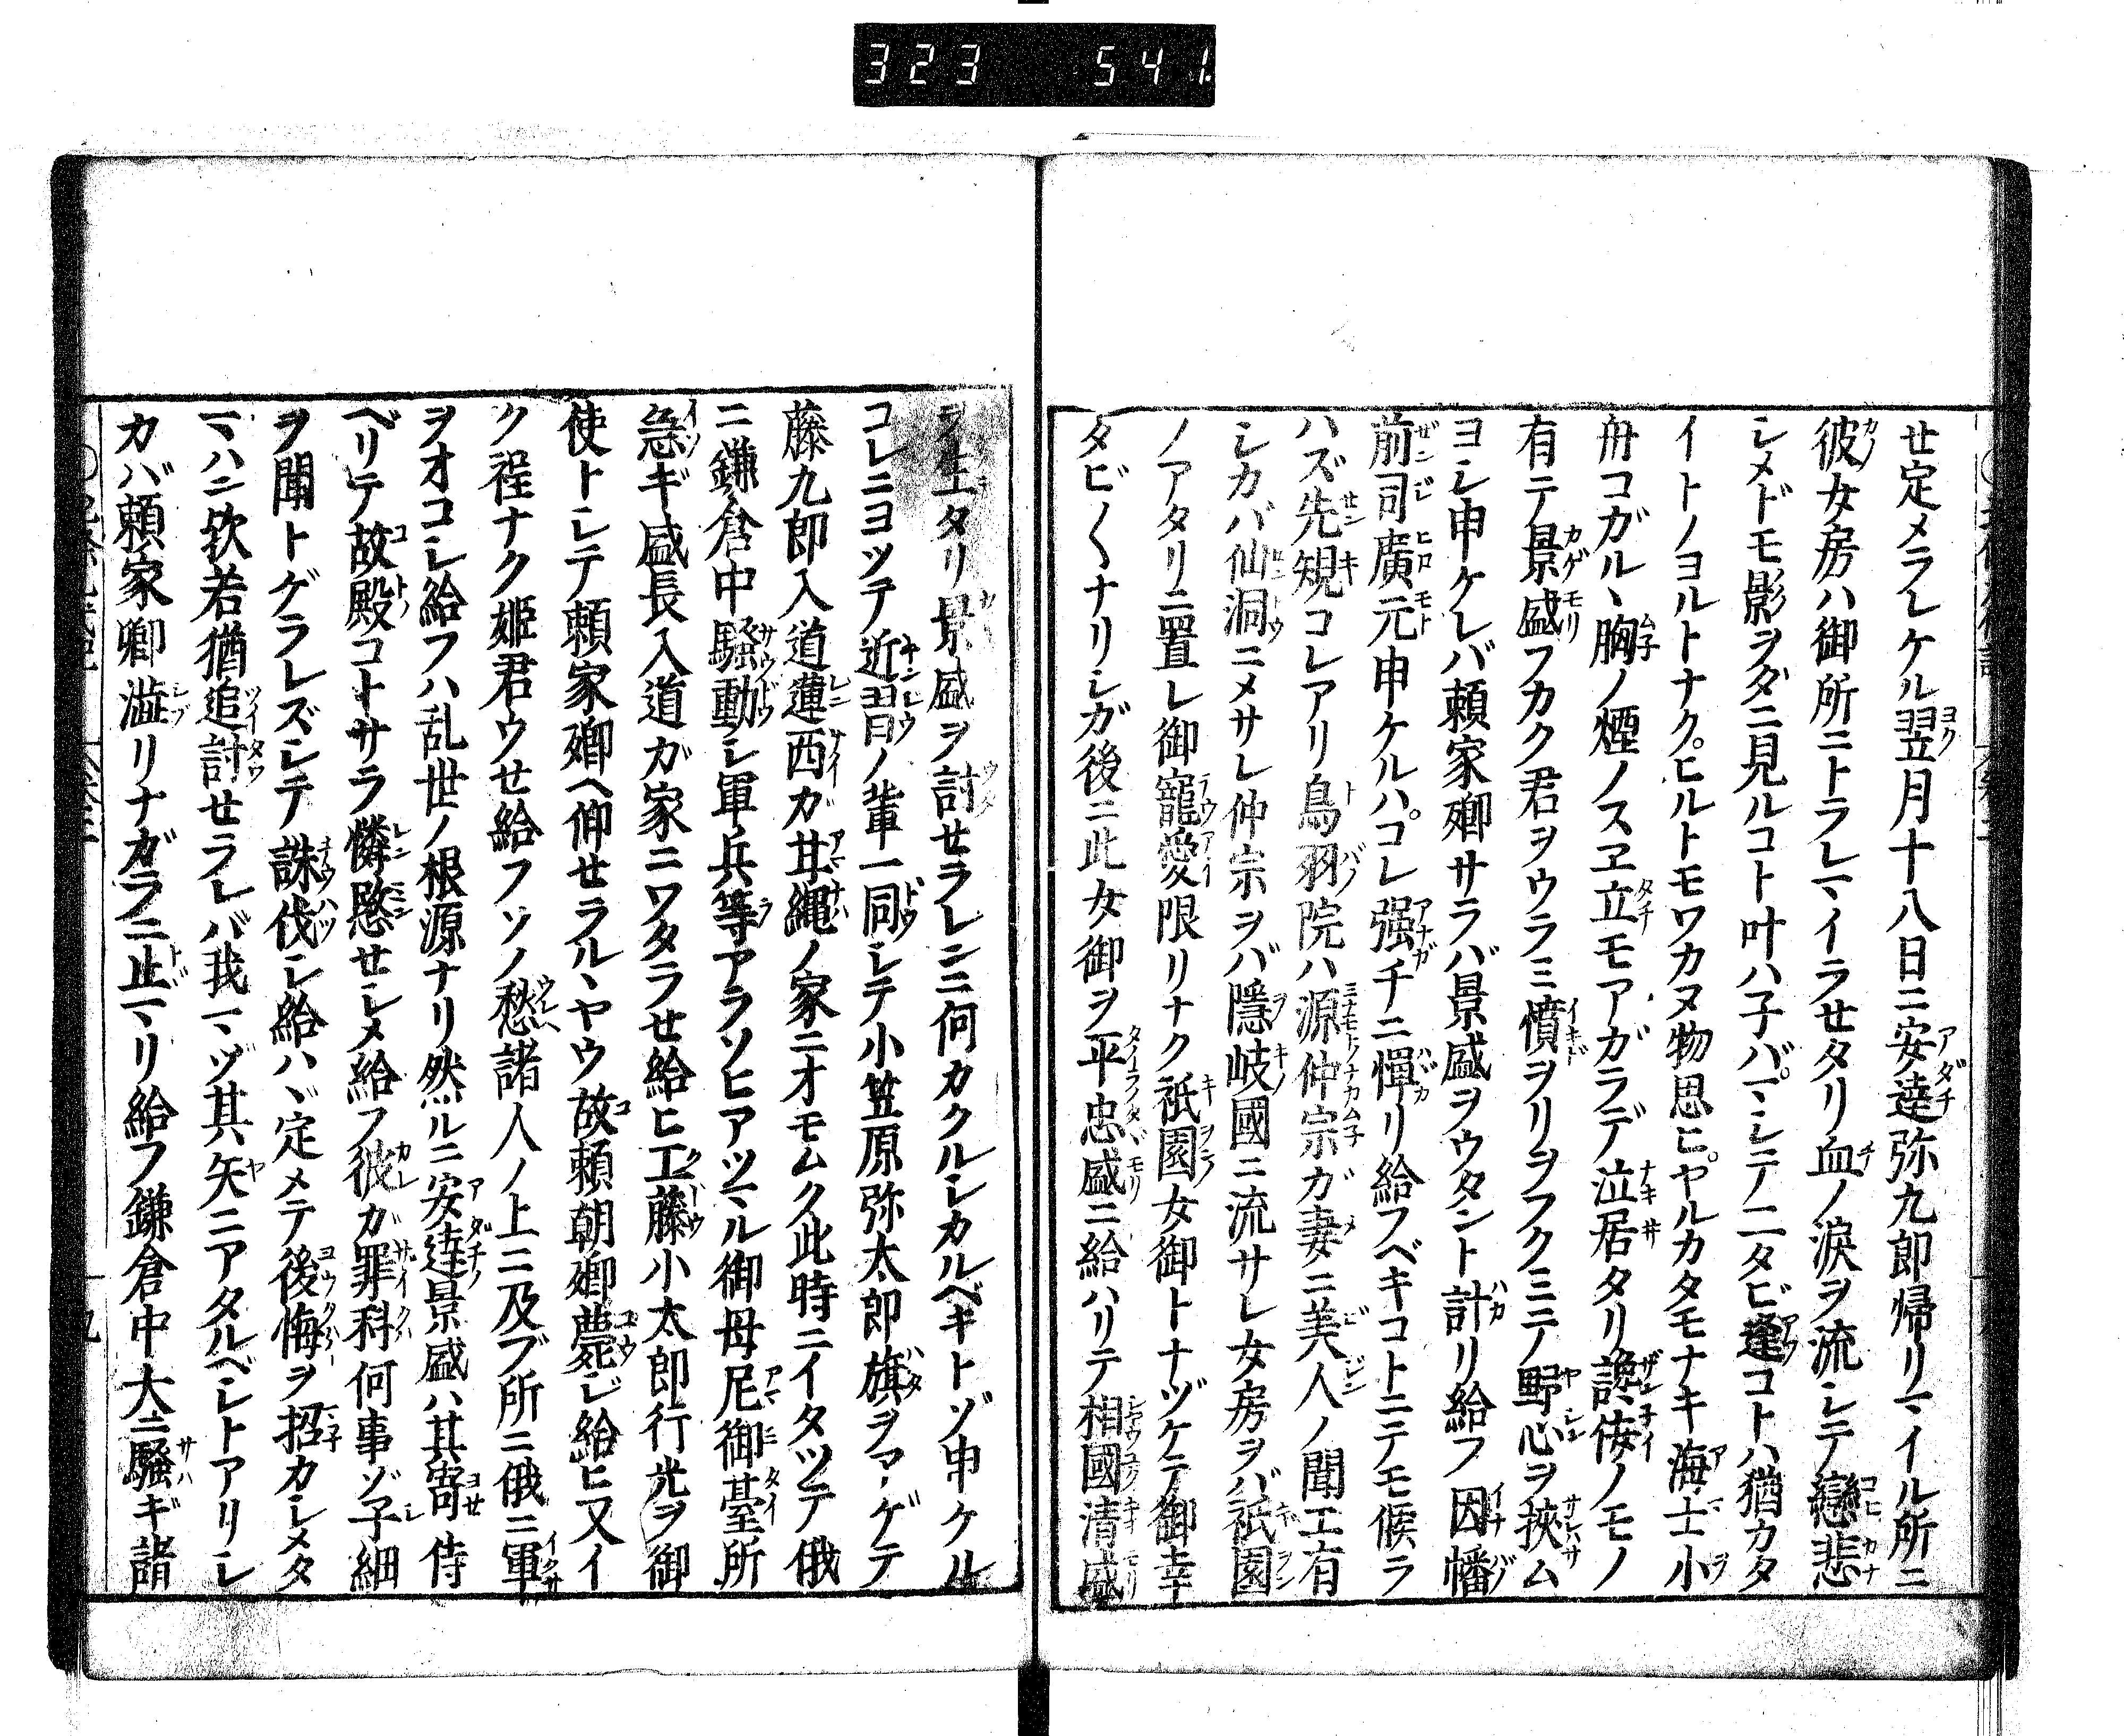 323 541
せ定メラレケル翌月十八日ニ安達弥九郎帰リマイル所ニ
彼女房ハ御所ニトラレマイラせタリ血ノ涙ヲ流シテ戀悲
シメドモ影ヲダニ見ルコト叶ハ子バマシテ二タビ逢コトハ猶カタ
イトノヨルトナクヒルトモワカヌ物思ヒヤルカタモナキ海士小
舟コガルヽ胸ノ煙ノスヱ立モアガラデ泣居タリ讒侫ノモノ
有テ景盛フカク君ヲウラミ憤ヲリヲフクミテ野心ヲ挾ム
ヨシ申ケレバ頼家卿サラバ景盛ヲウタント計リ給フ因幡
前司廣元申ケルハコレ强チニ憚リ給フベキコトニテモ候ラ
ハズ先規コレアリ鳥羽院ハ源仲宗ガ妻ニ美人ノ聞エ有
シカバ仙洞ニメサレ仲宗ヲバ隱岐國ニ流サレ女房ヲバ祇園
ノアタリニ置レ御寵愛限リナク祇園女御トナヅケテ御幸
タビ〱ナリシガ後ニ此女御ヲ平忠盛ニ給ハリテ相國清盛
ヲ生タリ景盛ヲ討せラレンニ何カクルシカルベキトゾ申ケル
コレニヨツチ近習ノ輩一同シテ小笠原弥太郎旗ヲアゲテ
藤九郎入道蓮西ガ甘繩ノ家ニオモムク此時ニイタツテ俄
ニ鎌倉中騷動シ軍兵等アラソヒアツマル御母尼御臺所
急ギ盛長入道ガ家ニワタラせ給ヒ工藤小太郎行光ヲ御
使トシテ頼家卿ヘ仰せラルヽヤウ故頼朝卿薨ジ給ヒ又イ
ク程ナク姫君ウせ給フソノ愁諸人ノ上ニ及ブ所ニ俄ニ軍
ヲオコシ給フハ乱世ノ根源ナリ然ルニ安達景盛ハ其寄侍
ベリテ故殿コトサラ憐愍せシメ給フ彼ガ罪科何事ゾ子細
ヲ聞トゲラレズシテ誅伐シ給ハヾ定メテ後悔ヲ招カシメタ
マハン欤若猶追討せラレバ我マヅ其矢ニアタルベシトアリシ
カバ頼家卿澁リナガラニ止マリ給フ鎌倉中大ニ騷ギ諸